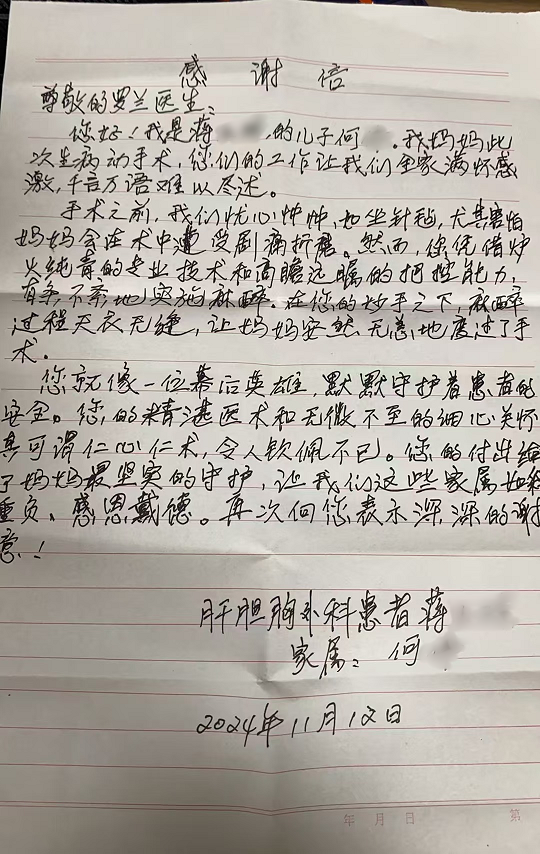 感谢信
尊敬的罗兰医生：
您好！我是蒋 的儿子何 。我妈妈此
次生病动手术，您们的工作让我们全家满怀感
激，千言万语难以尽述。
手术之前，我们忧心忡忡，如坐针毡，尤其害怕
妈妈会在术中遭受剧痛折磨。然而，您凭借炉
火纯青的专业技术和高瞻远瞩的把控能力，
有条不紊地实施麻醉。在您的妙手之下，麻醉
过程天衣无缝，让妈妈安然无恙地度过了手
术。
您就像一位幕后英雄，默默守护着患者的
安全。您的精湛医术和无微不至的细心关怀
真可谓仁心仁术，令人钦佩不已。您的付出给
了妈妈最坚实的守护，让我们这些家属如释
重负、感恩戴德。再次向您表示深深的谢
意！
肝胆胸外科患者蒋
家属：何
2024年11月12日
年 月 日 第